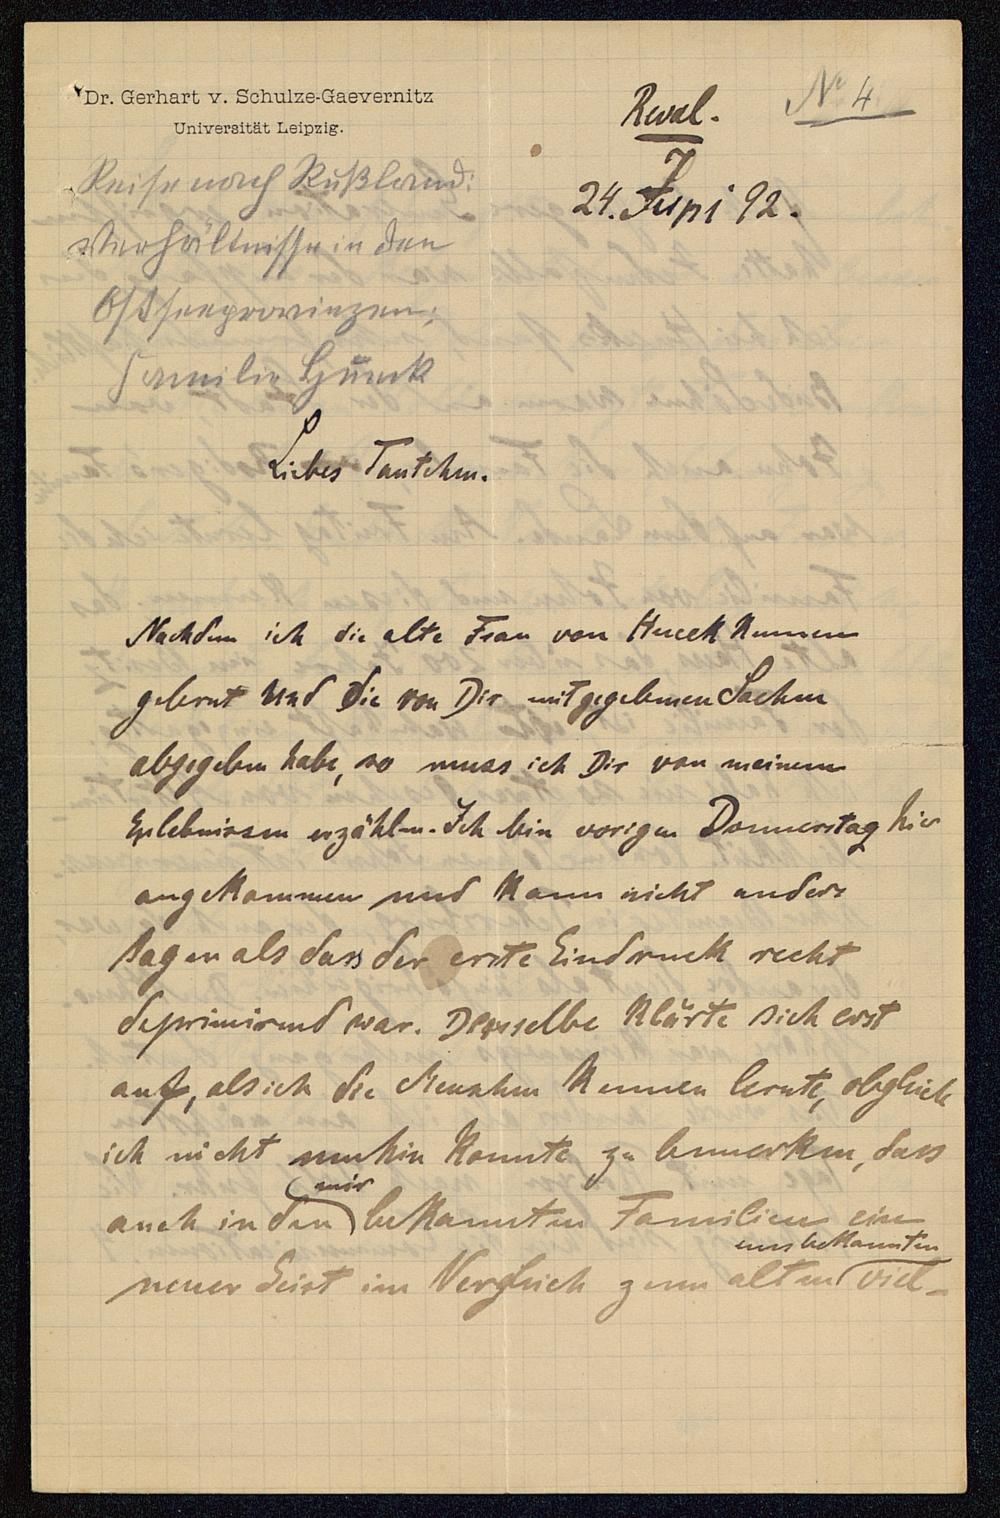 Dr. Gerhart v. Schulze-Gaevernitz
Universität Leipzig.
No 4
Reval.
24. Juni 92.
Reise nach Rußland:
Verhältnisse in den
Ostseeprovinzen;
Familie Hueck
Liebes Tantchen.
Nachdem ich die alte Frau von Hueck kennen
gelernt und die von Dir mitgegebenen Sachen
abgegeben habe, so muss ich Dir von meinem
Erlebnissen erzählen. Ich bin vorigen Donnerstag hier
angekommen und kann nicht anders
sagen als dass der erste Eindruck recht
deprimirend war. Derselbe klärte sich erst
auf, als ich die Menschen kennen lernte, obgleich
ich nicht umhin konnte zu bemerken, dass
auch in den mir bekannten Familien ein
neuer Geist im Vergleich zum alten uns bekannten viel-